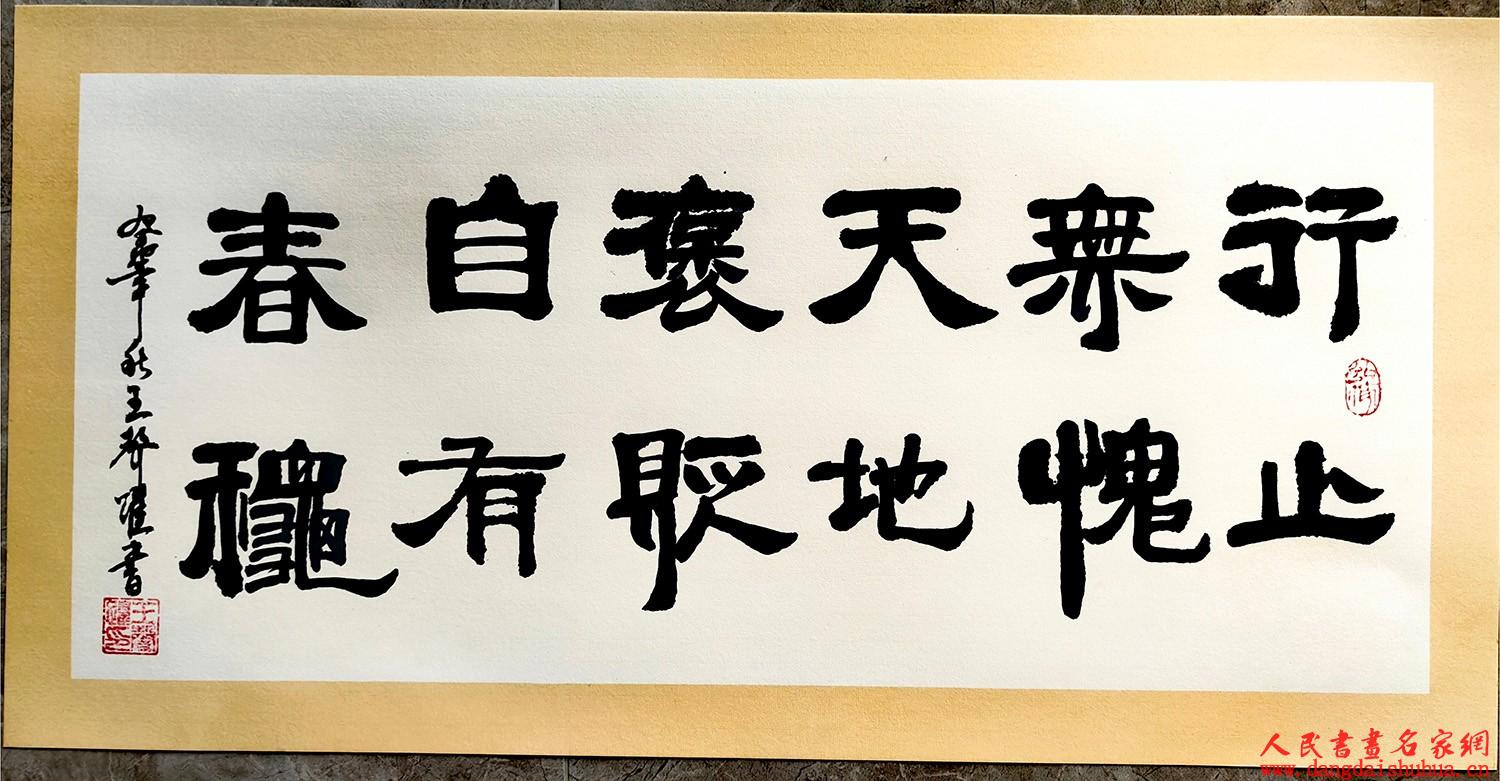 行止
無愧
天地
褒貶
自有
春龝
秋王聲躍書
人民書畫名家網
www.dangdaishuhua.cn